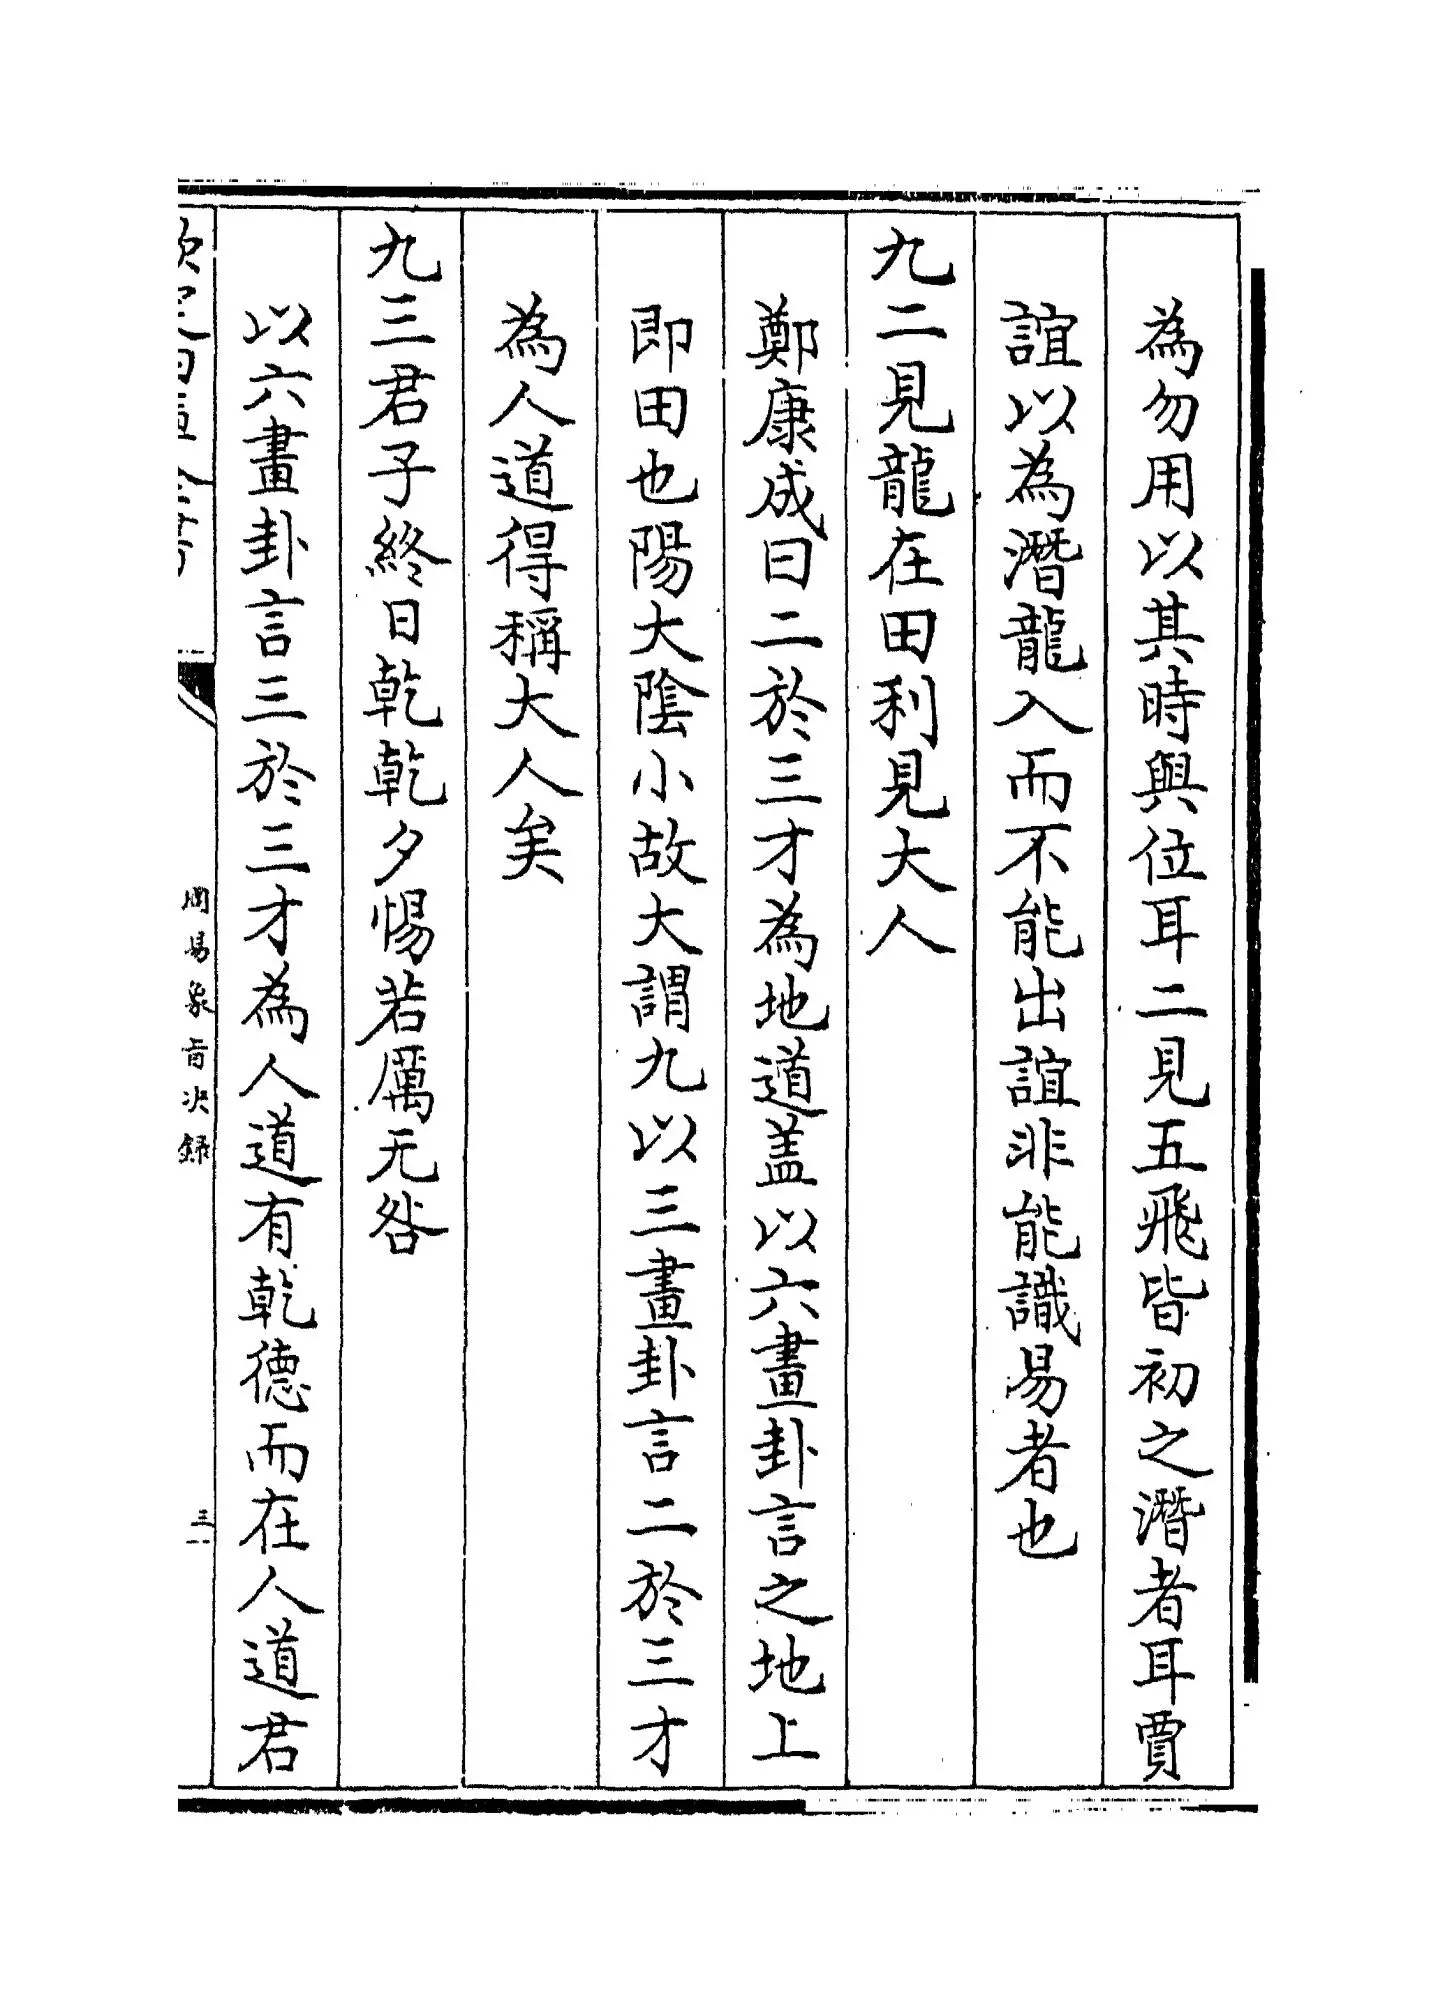 為勿用以其時與位耳二見五飛皆初之潛者耳賈
誼以為潛龍入而不能出誼非能識易者也
九二見龍在田利見大人
鄭康成曰二於三才為地道盖以六畫卦言之地上
即田也陽大陰小故大謂九以三畫卦言二於三才
為人道得稱大人矣
九三君子終日乾乾夕惕若厲无咎
以六畫卦言三於三才為人道有乾德而在人道君
周易象旨决録
三